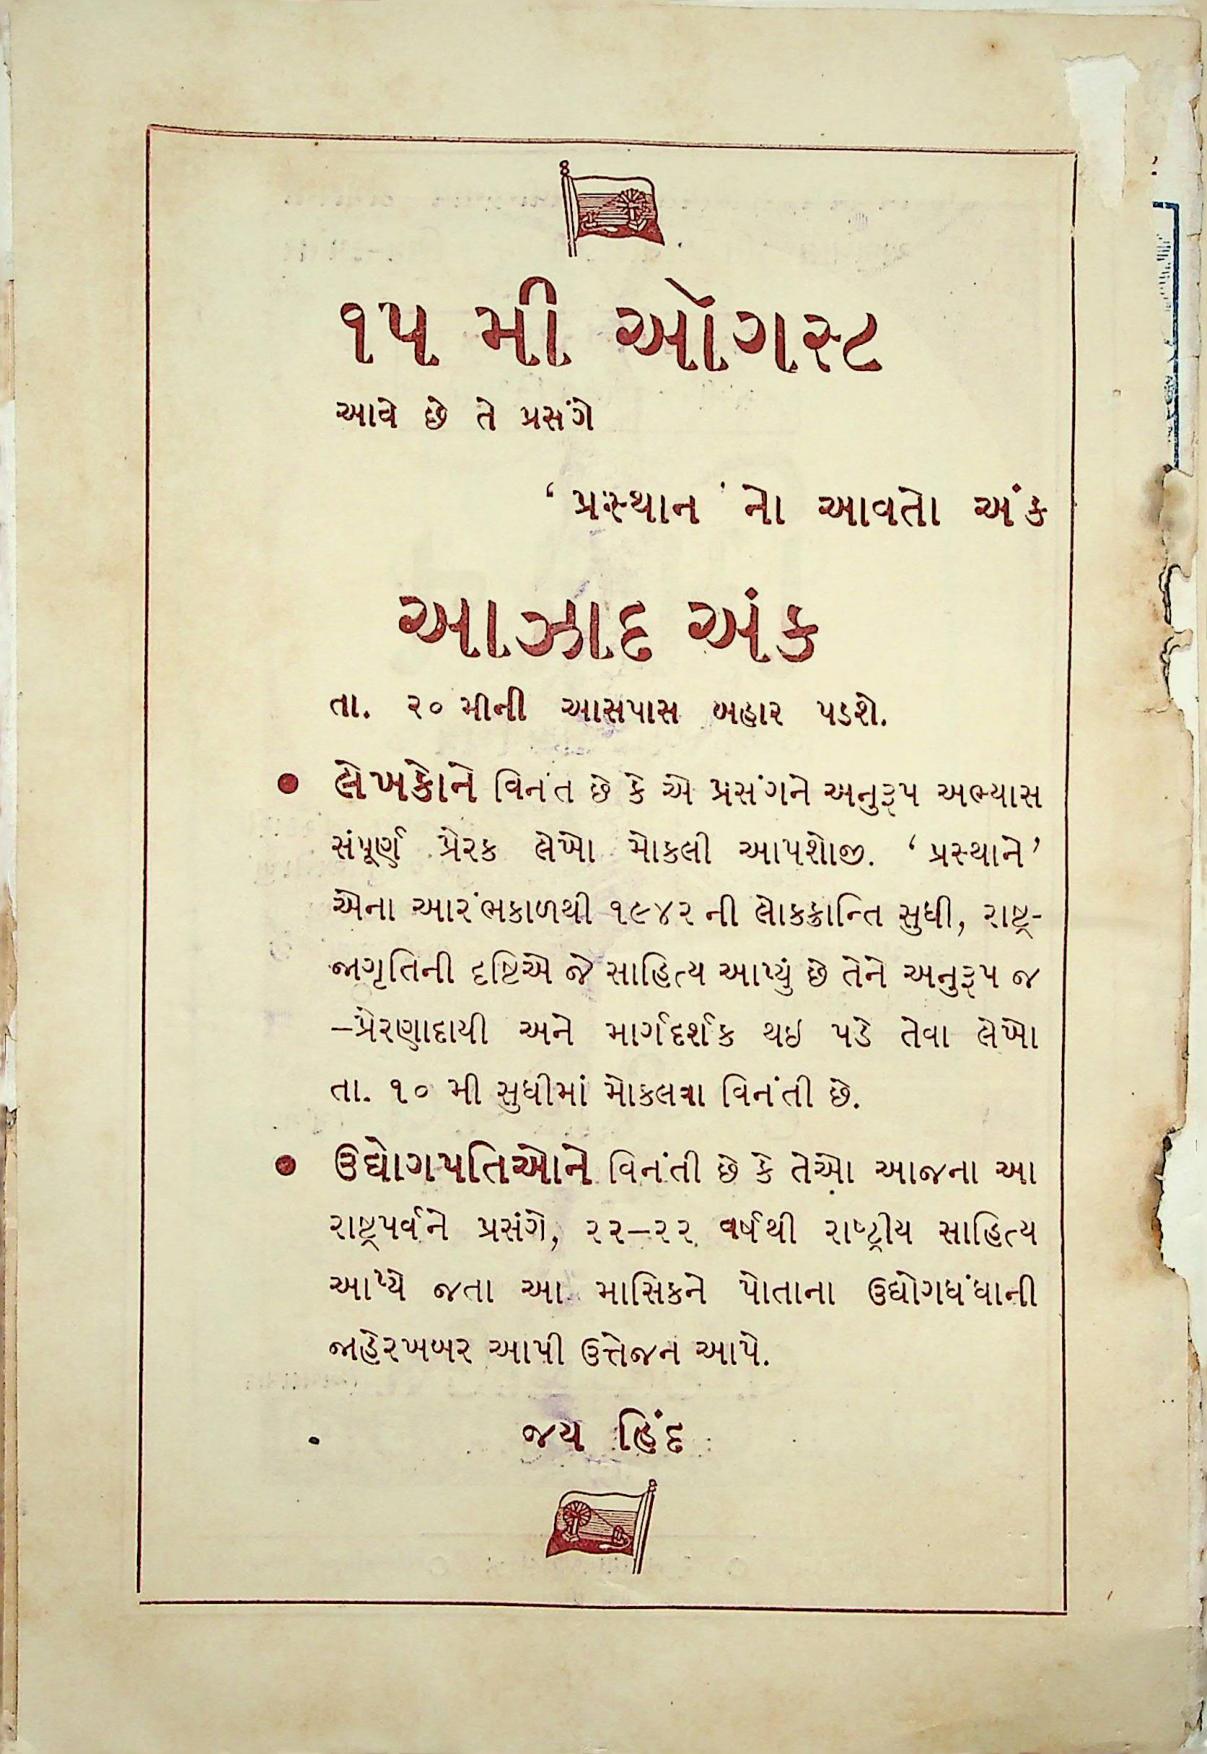 ૧૫ મી ઑગસ્ટ
આવે છે તે પ્રસંગે
‘ પ્રસ્થાન ’ નો આવતો અંક
આઝાદ અંક
તા. ૨૦ મીની આસપાસ બહાર પડશે.
● લેખકોને વિનંત છે કે એ પ્રસંગને અનુરૂપ અભ્યાસ
સંપૂર્ણ પ્રેરક લેખો મોકલી આપશોજી. ‘ પ્રસ્થાને ’
એના આરંભકાળથી ૧૯૪૨ ની લોકક્રાન્તિ સુધી, રાષ્ટ્ર-
જાગૃતિની દૃષ્ટિએ જે સાહિત્ય આપ્યું છે તેને અનુરૂપ જ
–પ્રેરણાદાયી અને માર્ગદર્શક થઇ પડે તેવા લેખો
તા. ૧૦ મી સુધીમાં મોકલવા વિનંતી છે.
● ઉદ્યોગપતિઓને વિનંતી છે કે તેઓ આજના આ
રાષ્ટ્રપર્વને પ્રસંગે, ૨૨–૨૨ વર્ષથી રાષ્ટ્રીય સાહિત્ય
આપ્યે જતા આ માસિકને પોતાના ઉદ્યોગધંધાની
જાહેરખબર આપી ઉત્તેજન આપે.
જય હિંદ